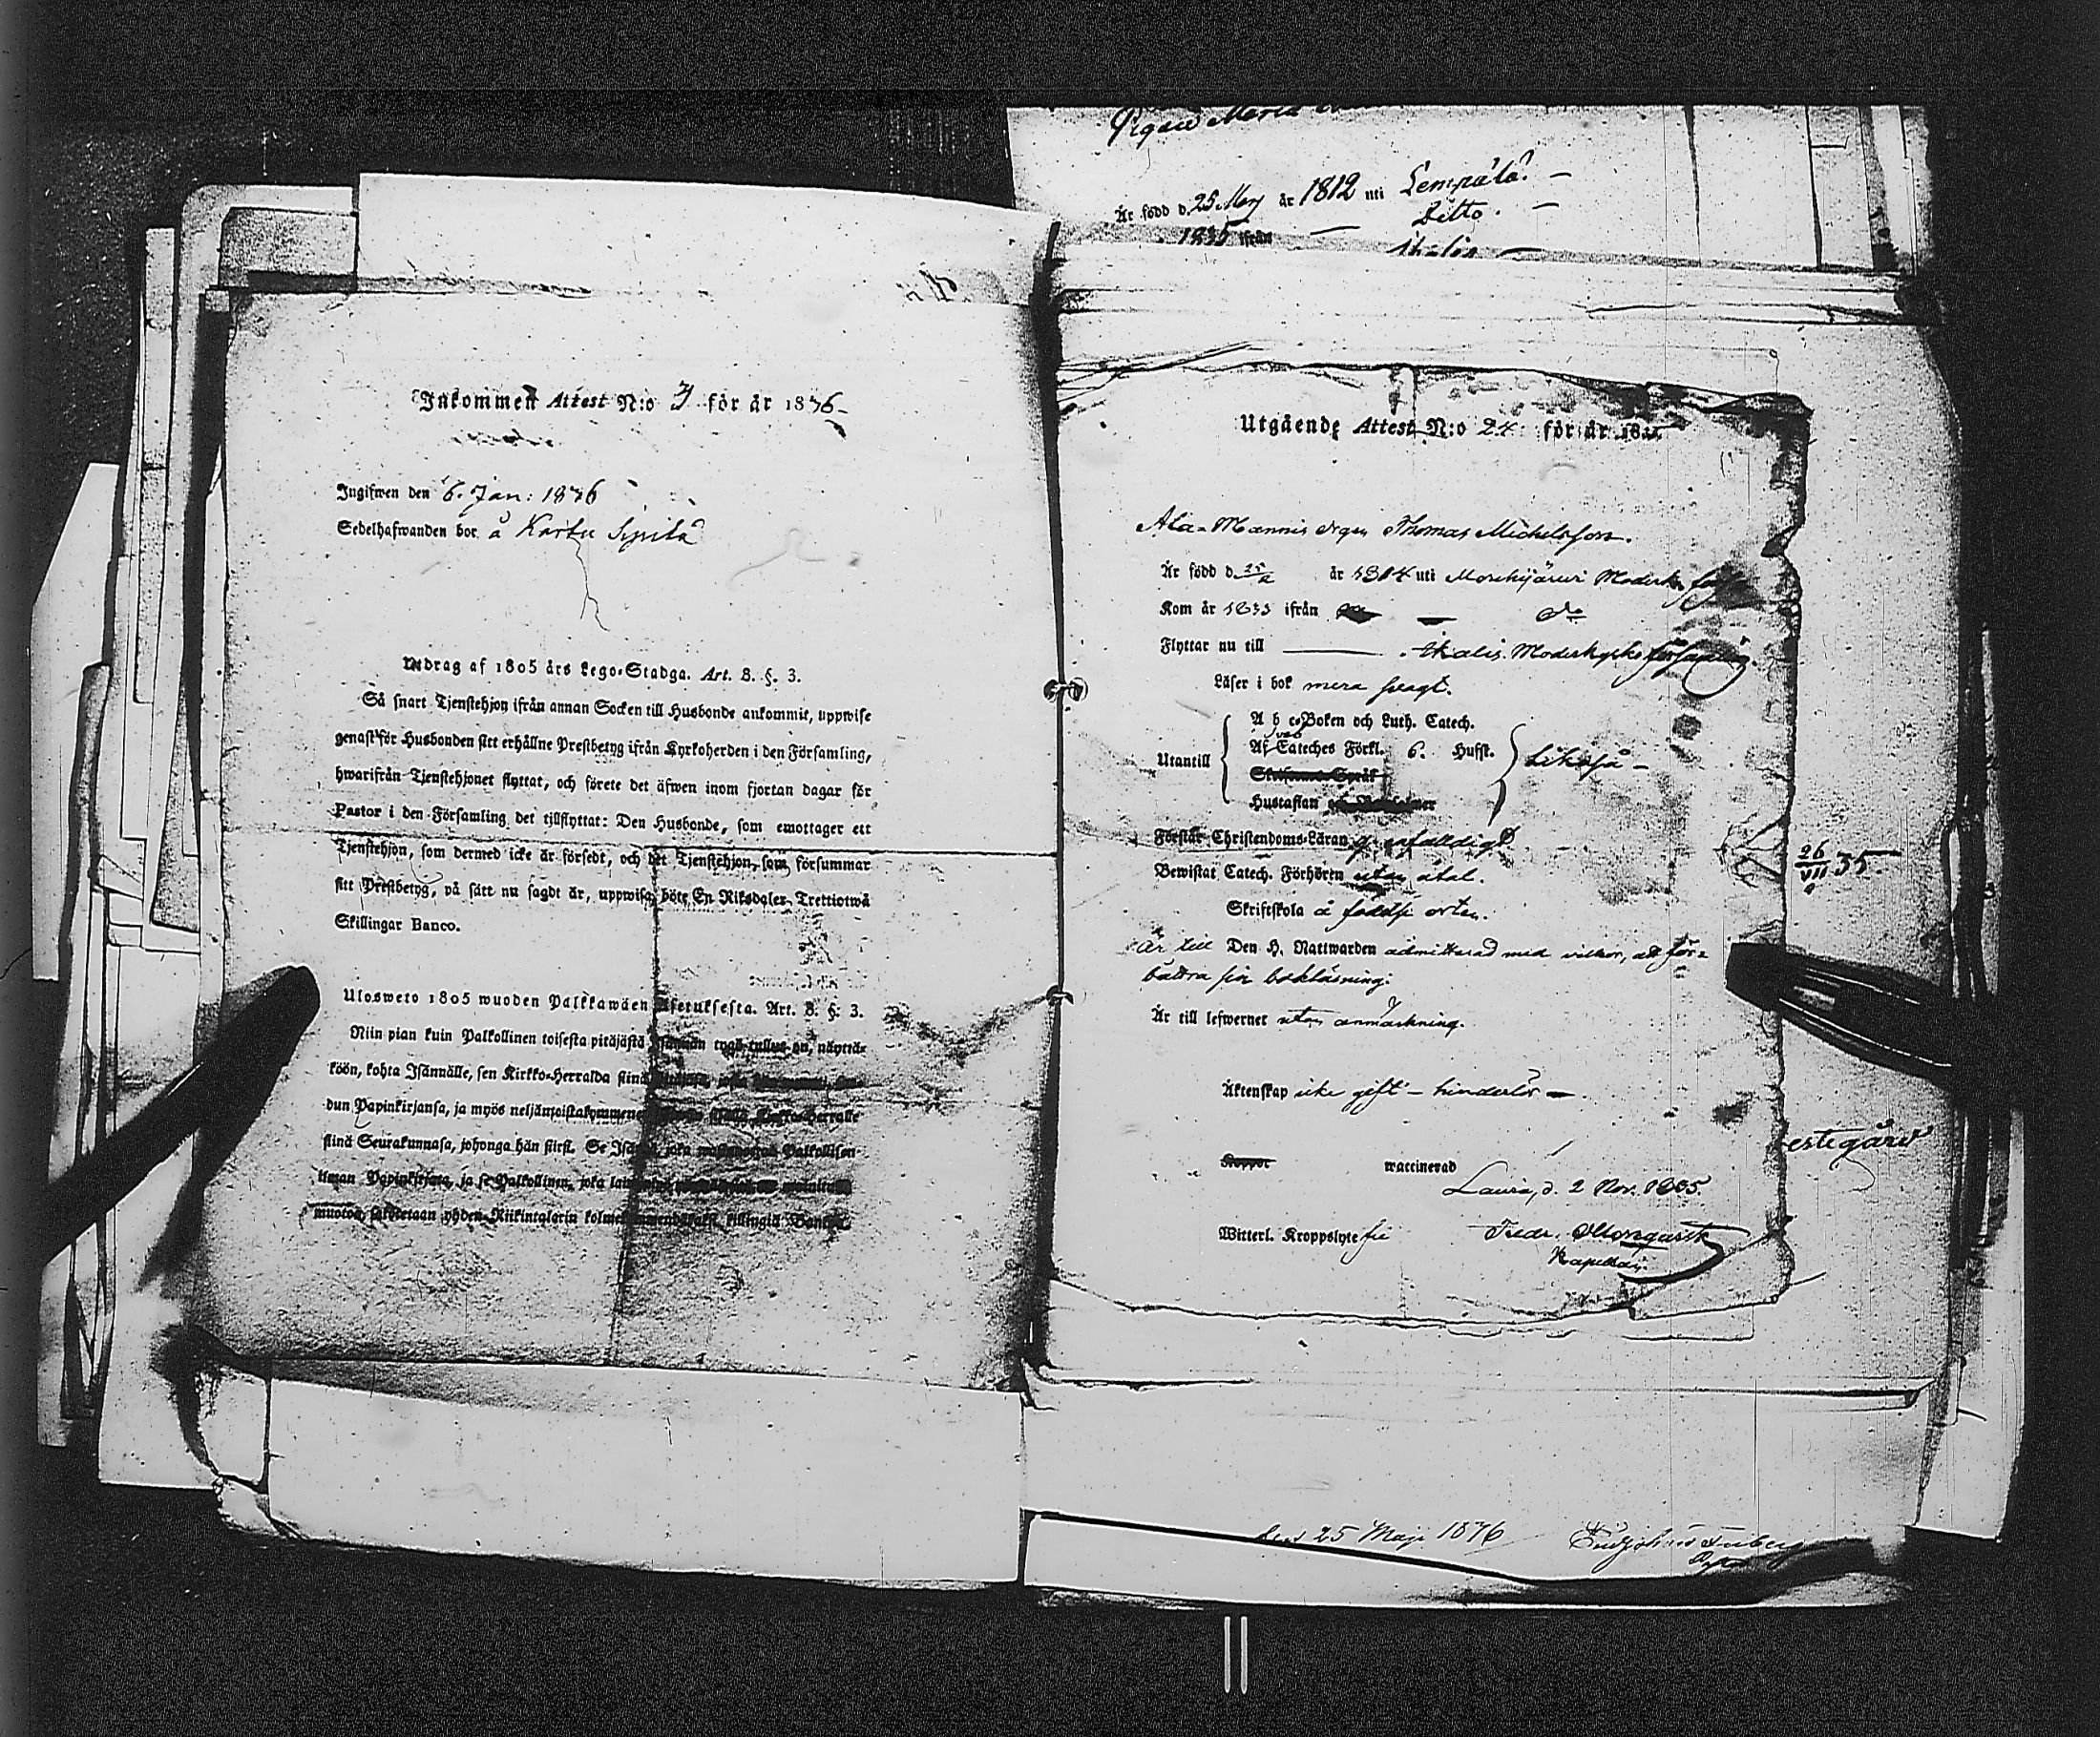 Inkommen Attest N:o 3 för år 1836
Ingifwen den 6. Jan: 1836
Sedelhafwanden bor å Kartu
Utdrag af 1805 års Lego-Stadga. Art. 8. §. 3.
Så snart Tjenstehjon ifrån annan Socken till Husbonde ankommit, uppwise
genast för Husbonden sitt erhållne Prestbetyg ifrån Kyrkoherden i den Församling,
hwarifrån Tjenstehjonet flyttat, och förete det äfwen inom fjortan dagar för
Pastor i den Församling det tillflyttat: Den Husbonde, som emottager ett
Tjenstehjon, som dermed icke är försedt, och det Tjenstehjon, som försummar
sitt Prestbetyg, på sätt nu sagdt är, uppwisa, böte En Riksdaler Trettiotwå
Skillingar Banco.
Ulosweto 1805 wuoden Palkkawäen Asetuksesta. Art. 8. §: 3.
Niin pian kuin Palkollinen toisesta pitäjästä Isännän tygö tullut on, näyttä-
köön, kohta Isännälle, sen Kirkko-Herralda siinä
dun Papinkirjansa, ja myös neljäntoistakymmenen Kirkko-Herralle
siinä Seurakunnasa, johonga hän siirst. Se Isändä, joka Palkollisen
ilman Papinkirjata, ja se Palkollinen, joka
muotoa, sakotetaan yhden Riikintalarin killingiä Bancosa.
Pigan Maria
Är född d. 25 Maj år 1812 uti Lempälä. —
Ditto. —
1835 ifrån —
Ikalis —
Utgående Attest N:o 24 för år 1835
Ala-Mannis drgn Thomas Michelsson.
Är född d. 25/2 år 1814 uti Mouhijärvi Moderk.
Kom år 1833 ifrån — do
Flyttar nu till — Ikalis Moderkyrko församling.
Läser i bok mera svagt.
A b c-Boken och Luth. Catech.
Utantill Af Cateches Förkl. 6. Hufst. Likaså —
Skriftenes Språk
Hustaflan
Förstår Christendoms-Läran enfaldigt
Bewistat Catech. Förhören utan åtal.
Skriftskola å födelse orten.
Är till Den H. Nattwarden admitterad med vilkor, att för-
bättra sin bokläsning.
Är till lefwernet utan anmärkning.
Äktenskap icke gift — hinderlös —.
Koppor waccinerad
Lavia, d. 2 Nov. 1835.
Witterl. Kroppslyte fri Fredr.
Kapellan.
26/VII 35.
den 25 Maji 1836